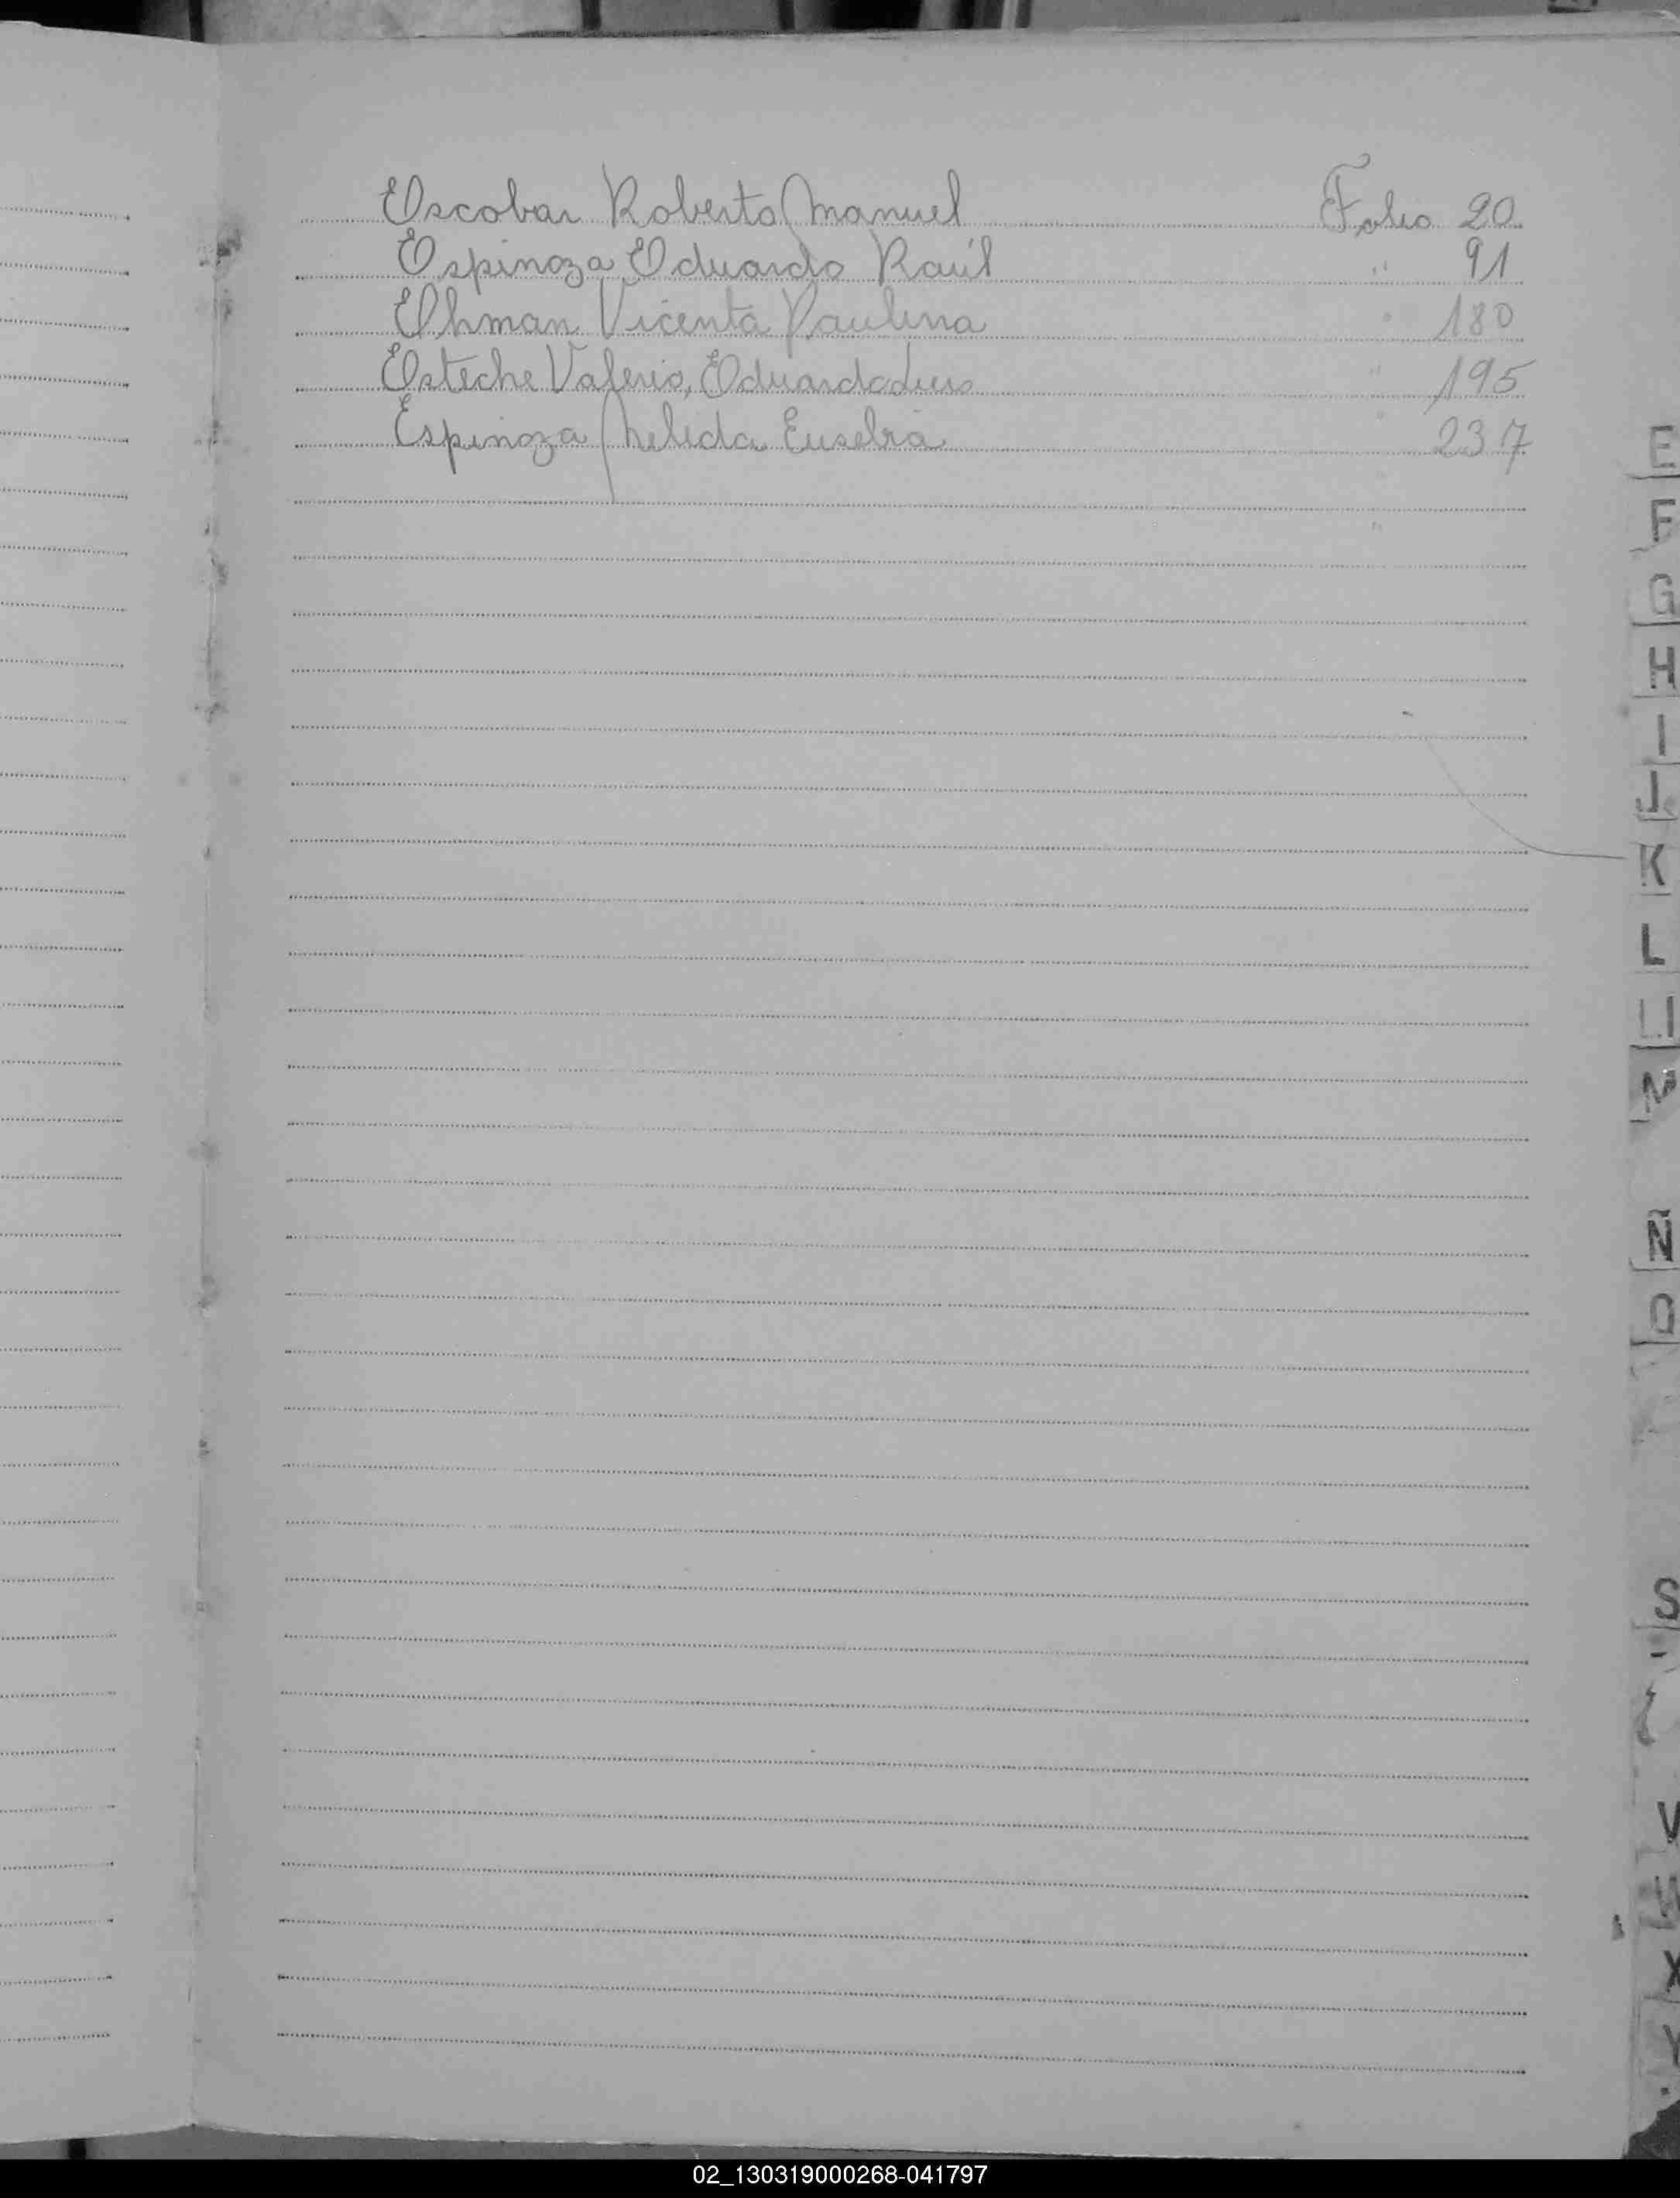 Escobar Roberto Manuel Folio 20
Espinoza Eduardo Raúl " 91
Ehman Vicenta Paulina " 180
Esteche Valerio, Eduardo Luis " 195
Espinoza Nelida Eusebia " 237
E
F
G
H
I
J
K
L
Ll
N
Ñ
O
S
V
W
X
Y
02_130319000268-041797